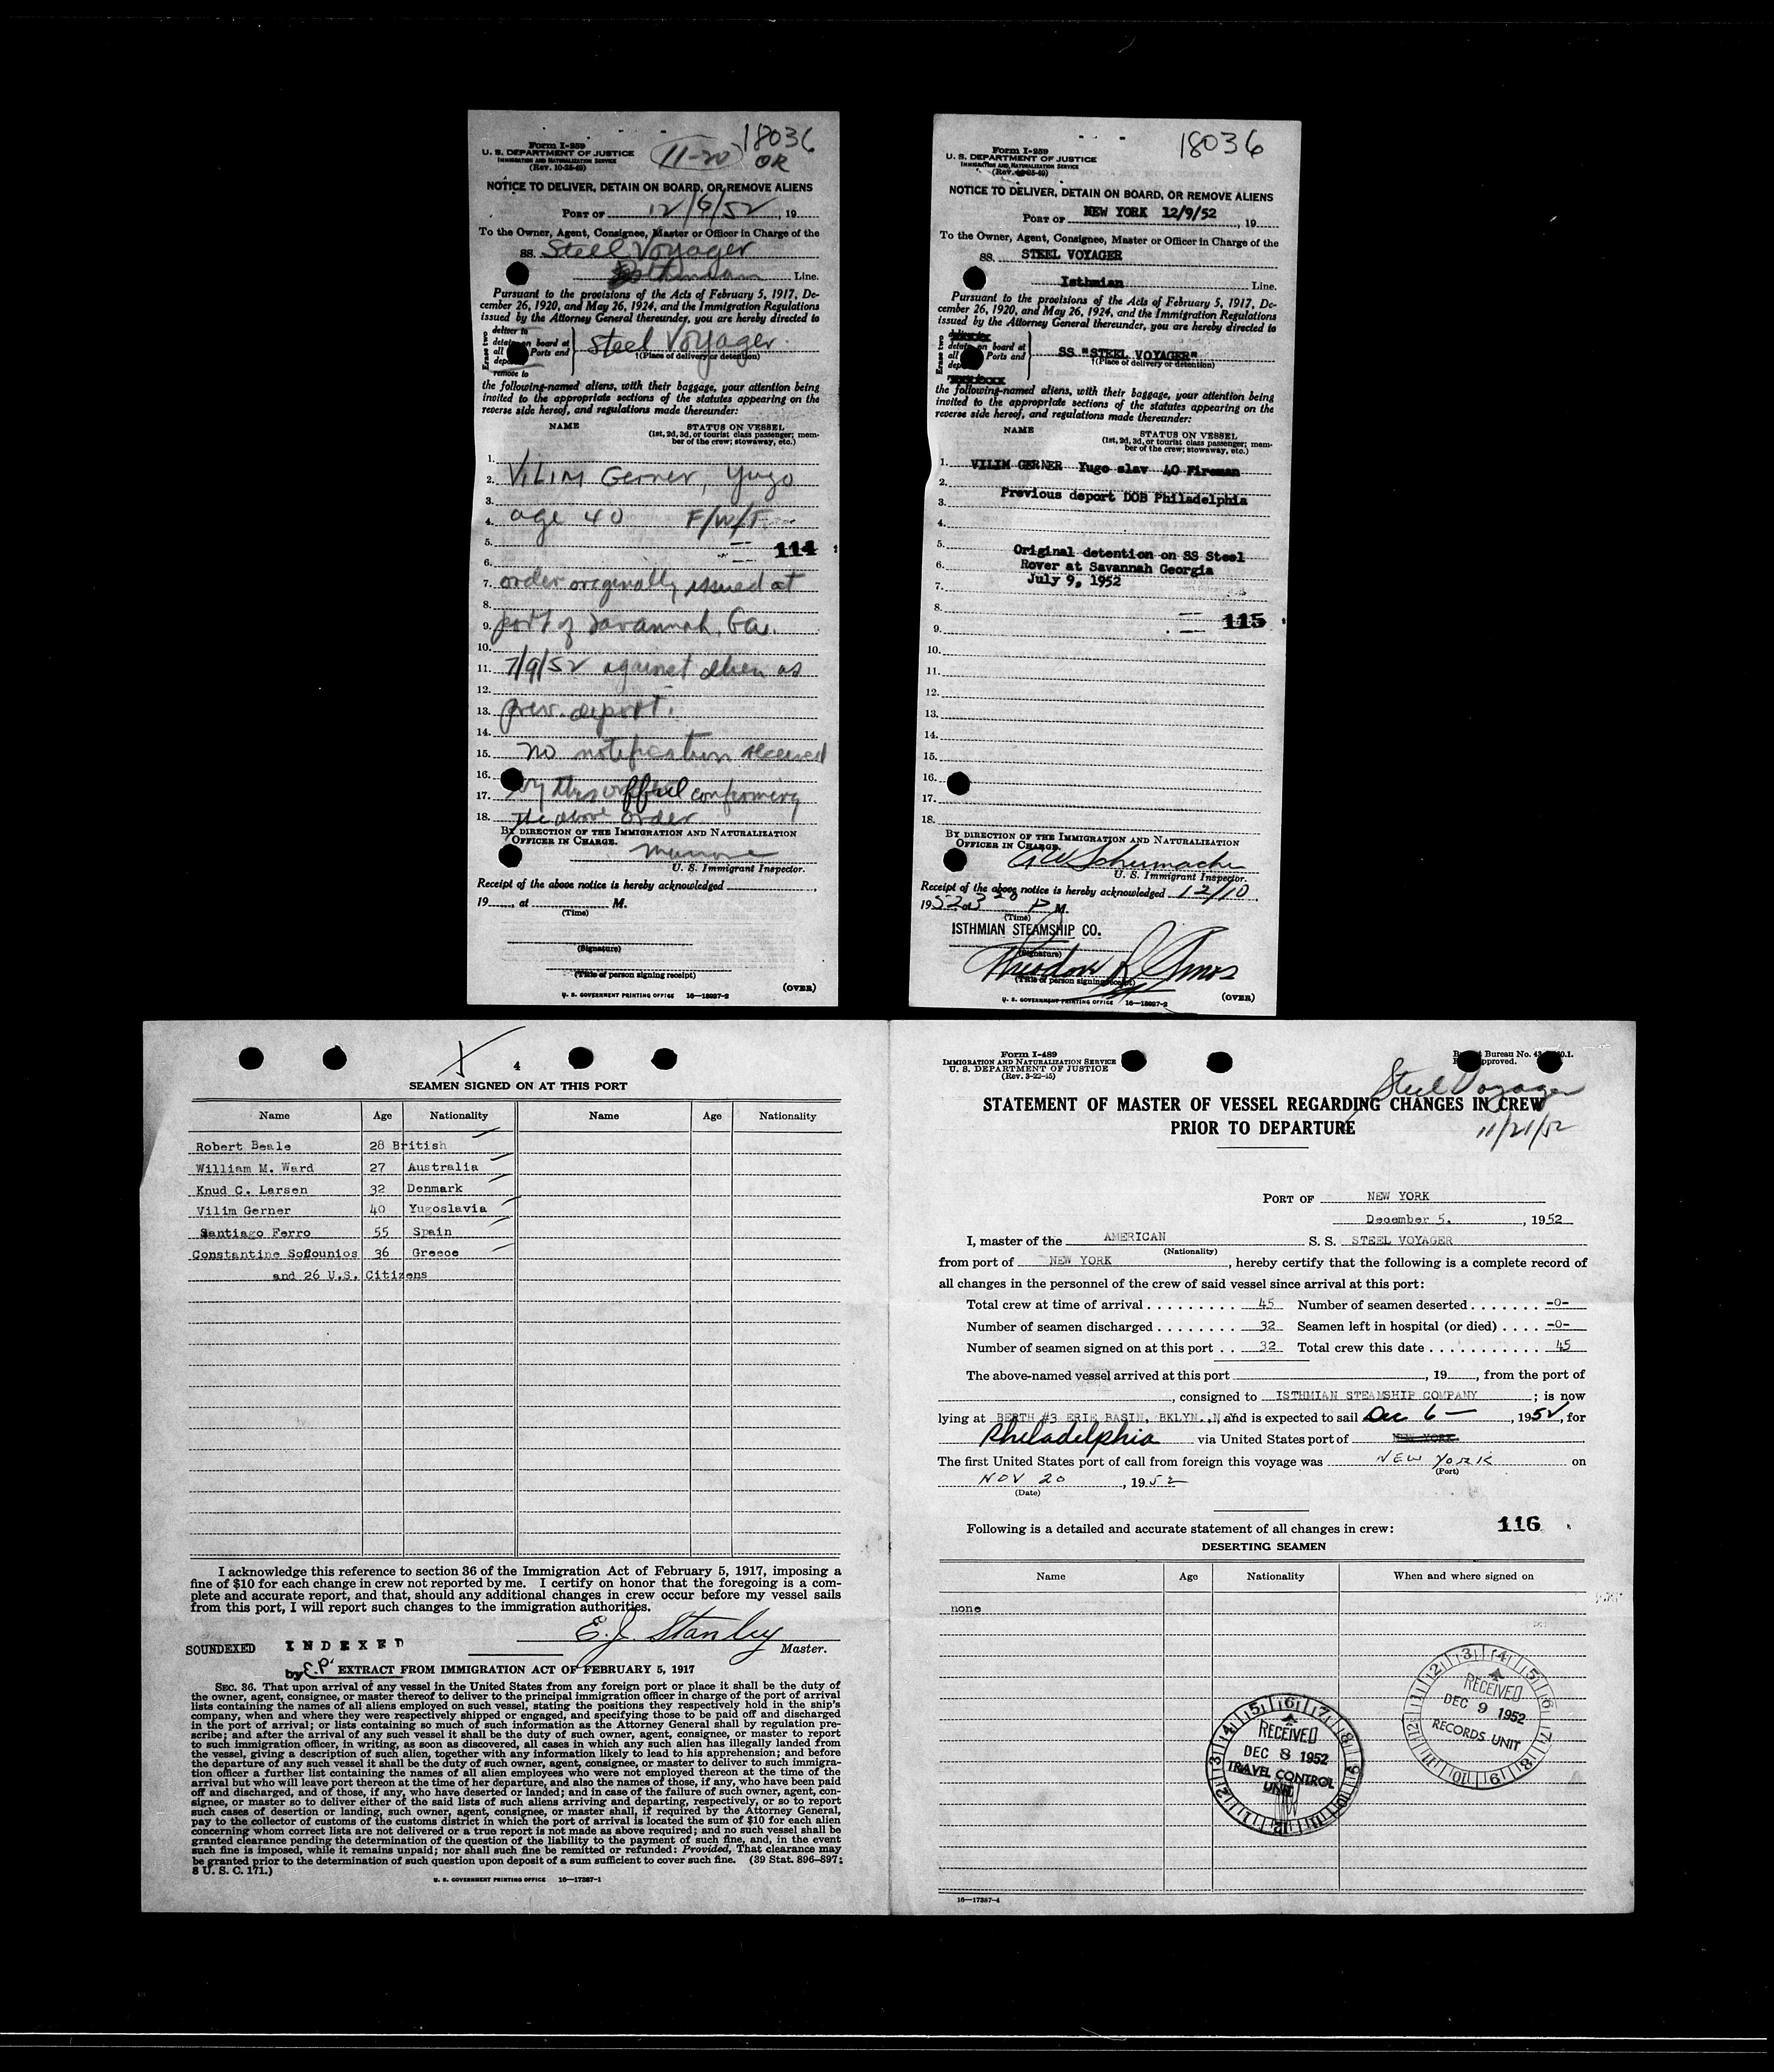 Form I-259
U. S. DEPARTMENT OF JUSTICE
IMMIGRATION AND NATURALIZATION SERVICE
(Rev. 10-25-49)
11-20
18036
OR
NOTICE TO DELIVER, DETAIN ON BOARD, OR REMOVE ALIENS
PORT OF 12/6/52, 19
To the Owner, Agent, Consignee, Master or Officer in Charge of the
SS. Steel Voyager
Isthmian Line.
Pursuant to the provisions of the Acts of February 5, 1917, De-
cember 26, 1920, and May 26, 1924, and the Immigration Regulations
issued by the Attorney General thereunder, you are hereby directed to
Erase two
deliver to
detain on board at
all Ports and
remove to
Steel Voyager
(Place of delivery or detention)
the following-named aliens, with their baggage, your attention being
invited to the appropriate sections of the statutes appearing on the
reverse side hereof, and regulations made thereunder:
NAME STATUS ON VESSEL
(1st, 2d, 3d, or tourist class passenger; mem-
ber of the crew; stowaway, etc.)
1.
2. VILIM Gerner, Yugo
3.
4. age 40 F/W/T
5. 114
6.
7. order originally issued at
8.
9. port of Savannah, Ga.
10.
11. 7/9/52 against alien as
12.
13. prev. deport.
14.
15. no notification received
16.
17. by this office confirming
18. the above order
BY DIRECTION OF THE IMMIGRATION AND NATURALIZATION
OFFICER IN CHARGE.
U. S. Immigrant Inspector.
Receipt of the above notice is hereby acknowledged
19, at M.
(Time)
(Signature)
(Title of person signing receipt)
(OVER)
U. S. GOVERNMENT PRINTING OFFICE 16—18027-2
Form I-259
U. S. DEPARTMENT OF JUSTICE
IMMIGRATION AND NATURALIZATION SERVICE
(Rev. 10-25-49)
18036
NOTICE TO DELIVER, DETAIN ON BOARD, OR REMOVE ALIENS
PORT OF NEW YORK 12/9/52, 19
To the Owner, Agent, Consignee, Master or Officer in Charge of the
SS. STEEL VOYAGER
Isthmian Line.
Pursuant to the provisions of the Acts of February 5, 1917, De-
cember 26, 1920, and May 26, 1924, and the Immigration Regulations
issued by the Attorney General thereunder, you are hereby directed to
Erase two
detain on board at
all Ports and
SS "STEEL VOYAGER"
(Place of delivery or detention)
the following-named aliens, with their baggage, your attention being
invited to the appropriate sections of the statutes appearing on the
reverse side hereof, and regulations made thereunder:
NAME STATUS ON VESSEL
(1st, 2d, 3d, or tourist class passenger; mem-
ber of the crew; stowaway, etc.)
1. VILIM GERNER Yugo slav 40 Fireman
2.
3. Previous deport DOB Philadelphia
4.
5. Original detention on SS Steel
6. Rover at Savannah Georgia
7. July 9, 1952
8. 115
9.
10.
11.
12.
13.
14.
15.
16.
17.
18.
BY DIRECTION OF THE IMMIGRATION AND NATURALIZATION
OFFICER IN CHARGE.
U. S. Immigrant Inspector.
Receipt of the above notice is hereby acknowledged 12/10,
1952 at 3 20 P M.
(Time)
ISTHMIAN STEAMSHIP CO.
(Signature)
Theodore R. Amos
(Title of person signing receipt)
(OVER)
U. S. GOVERNMENT PRINTING OFFICE 16—18027-2
4
SEAMEN SIGNED ON AT THIS PORT
Name Age Nationality Name Age Nationality
Robert Beale 28 British
William M. Ward 27 Australia
Knud C. Larsen 32 Denmark
Vilim Gerner 40 Yugoslavia
Santiago Ferro 55 Spain
Constantine Sofounios 36 Greece
and 26 U.S. Citizens
I acknowledge this reference to section 36 of the Immigration Act of February 5, 1917, imposing a
fine of $10 for each change in crew not reported by me. I certify on honor that the foregoing is a com-
plete and accurate report, and that, should any additional changes in crew occur before my vessel sails
from this port, I will report such changes to the immigration authorities.
E.J. Stanley
Master.
SOUNDEXED INDEXED
by E.P.
EXTRACT FROM IMMIGRATION ACT OF FEBRUARY 5, 1917
SEC. 36. That upon arrival of any vessel in the United States from any foreign port or place it shall be the duty of
the owner, agent, consignee, or master thereof to deliver to the principal immigration officer in charge of the port of arrival
lists containing the names of all aliens employed on such vessel, stating the positions they respectively hold in the ship's
company, when and where they were respectively shipped or engaged, and specifying those to be paid off and discharged
in the port of arrival; or lists containing so much of such information as the Attorney General shall by regulation pre-
scribe; and after the arrival of any such vessel it shall be the duty of such owner, agent, consignee, or master to report
to such immigration officer, in writing, as soon as discovered, all cases in which any such alien has illegally landed from
the vessel, giving a description of such alien, together with any information likely to lead to his apprehension; and before
the departure of any such vessel it shall be the duty of such owner, agent, consignee, or master to deliver to such immigra-
tion officer a further list containing the names of all alien employees who were not employed thereon at the time of the
arrival but who will leave port thereon at the time of her departure, and also the names of those, if any, who have been paid
off and discharged, and of those, if any, who have deserted or landed; and in case of the failure of such owner, agent, con-
signee, or master so to deliver either of the said lists of such aliens arriving and departing, respectively, or so to report
such cases of desertion or landing, such owner, agent, consignee, or master shall, if required by the Attorney General,
pay to the collector of customs of the customs district in which the port of arrival is located the sum of $10 for each alien
concerning whom correct lists are not delivered or a true report is not made as above required; and no such vessel shall be
granted clearance pending the determination of the question of the liability to the payment of such fine, and, in the event
such fine is imposed, while it remains unpaid; nor shall such fine be remitted or refunded: Provided, That clearance may
be granted prior to the determination of such question upon deposit of a sum sufficient to cover such fine. (39 Stat. 896-897;
8 U. S. C. 171.)
U. S. GOVERNMENT PRINTING OFFICE 16—17387-1
Form I-489
IMMIGRATION AND NATURALIZATION SERVICE
U. S. DEPARTMENT OF JUSTICE
(Rev. 3-22-45)
Bureau No.
Approved.
Steel Voyager
11/21/52
STATEMENT OF MASTER OF VESSEL REGARDING CHANGES IN CREW
PRIOR TO DEPARTURE
PORT OF NEW YORK
December 5, 1952
I, master of the AMERICAN S. S. STEEL VOYAGER
(Nationality)
from port of NEW YORK, hereby certify that the following is a complete record of
all changes in the personnel of the crew of said vessel since arrival at this port:
Total crew at time of arrival 45 Number of seamen deserted -0-
Number of seamen discharged 32 Seamen left in hospital (or died) -0-
Number of seamen signed on at this port 32 Total crew this date 45
The above-named vessel arrived at this port, 19, from the port of
, consigned to ISTHMIAN STEAMSHIP COMPANY; is now
lying at BERTH #3 ERIE BASIN, BKLYN., N.Y. and is expected to sail Dec 6 —, 1952, for
Philadelphia via United States port of NEW YORK
The first United States port of call from foreign this voyage was NEW YORK on
(Port)
NOV 20, 1952
(Date)
Following is a detailed and accurate statement of all changes in crew: 116
DESERTING SEAMEN
Name Age Nationality When and where signed on
none
RECEIVED
DEC 9 1952
RECORDS UNIT
RECEIVED
DEC 8 1952
TRAVEL CONTROL
UNIT
16—17387-4